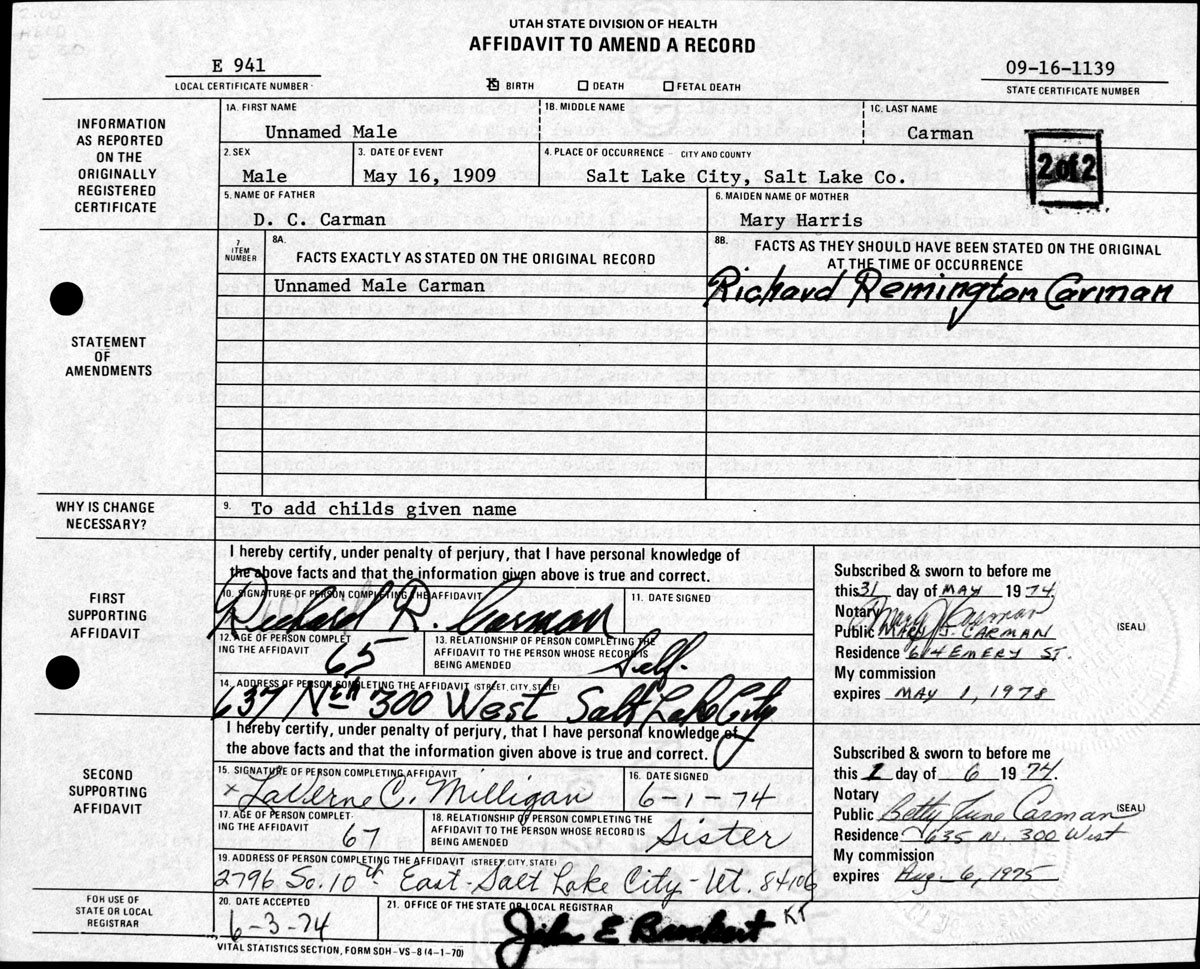 UTAH STATE DIVISION OF HEALTH
AFFIDAVIT TO AMEND A RECORD
E 941
LOCAL CERTIFICATE NUMBER
☒ BIRTH ☐ DEATH ☐ FETAL DEATH
09-16-1139
STATE CERTIFICATE NUMBER
INFORMATION
AS REPORTED
ON THE
ORIGINALLY
REGISTERED
CERTIFICATE
1A. FIRST NAME
Unnamed Male
1B. MIDDLE NAME
1C. LAST NAME
Carman
2 of 2
2. SEX
Male
3. DATE OF EVENT
May 16, 1909
4. PLACE OF OCCURRENCE - CITY AND COUNTY
Salt Lake City, Salt Lake Co.
5. NAME OF FATHER
D. C. Carman
6. MAIDEN NAME OF MOTHER
Mary Harris
STATEMENT
OF
AMENDMENTS
7
ITEM
NUMBER
8A.
FACTS EXACTLY AS STATED ON THE ORIGINAL RECORD
8B. FACTS AS THEY SHOULD HAVE BEEN STATED ON THE ORIGINAL
AT THE TIME OF OCCURRENCE
Unnamed Male Carman
Richard Remington Carman
WHY IS CHANGE
NECESSARY?
9. To add childs given name
FIRST
SUPPORTING
AFFIDAVIT
I hereby certify, under penalty of perjury, that I have personal knowledge of
the above facts and that the information given above is true and correct.
10. SIGNATURE OF PERSON COMPLETING THE AFFIDAVIT
Richard R. Carman
11. DATE SIGNED
12. AGE OF PERSON COMPLET
ING THE AFFIDAVIT
65
13. RELATIONSHIP OF PERSON COMPLETING THE
AFFIDAVIT TO THE PERSON WHOSE RECORD IS
BEING AMENDED
Self.
14. ADDRESS OF PERSON COMPLETING THE AFFIDAVIT (STREET, CITY, STATE)
637 Nth 300 West Salt Lake City
Subscribed & sworn to before me
this 31 day of MAY 1974
Notary Mary J Carman
Public MARY J. CARMAN (SEAL)
Residence 614 EMERY ST.
My commission
expires MAY 1, 1978
SECOND
SUPPORTING
AFFIDAVIT
I hereby certify, under penalty of perjury, that I have personal knowledge of
the above facts and that the information given above is true and correct.
15. SIGNATURE OF PERSON COMPLETING AFFIDAVIT
x LaVerne C. Milligan
16. DATE SIGNED
6-1-74
17. AGE OF PERSON COMPLET-
ING THE AFFIDAVIT
67
18. RELATIONSHIP OF PERSON COMPLETING THE
AFFIDAVIT TO THE PERSON WHOSE RECORD IS
BEING AMENDED
Sister
19. ADDRESS OF PERSON COMPLETING THE AFFIDAVIT (STREET, CITY, STATE)
2796 So. 10th East - Salt Lake City - Ut. 84106
Subscribed & sworn to before me
this 1 day of 6 1974.
Notary
Public Betty June Carman (SEAL)
Residence 635 N. 300 West
My commission
expires Aug. 6, 1975
FOR USE OF
STATE OR LOCAL
REGISTRAR
20. DATE ACCEPTED
6-3-74
21. OFFICE OF THE STATE OR LOCAL REGISTRAR
John E Brockert KT
VITAL STATISTICS SECTION, FORM SDH-VS-8 (4-1-70)